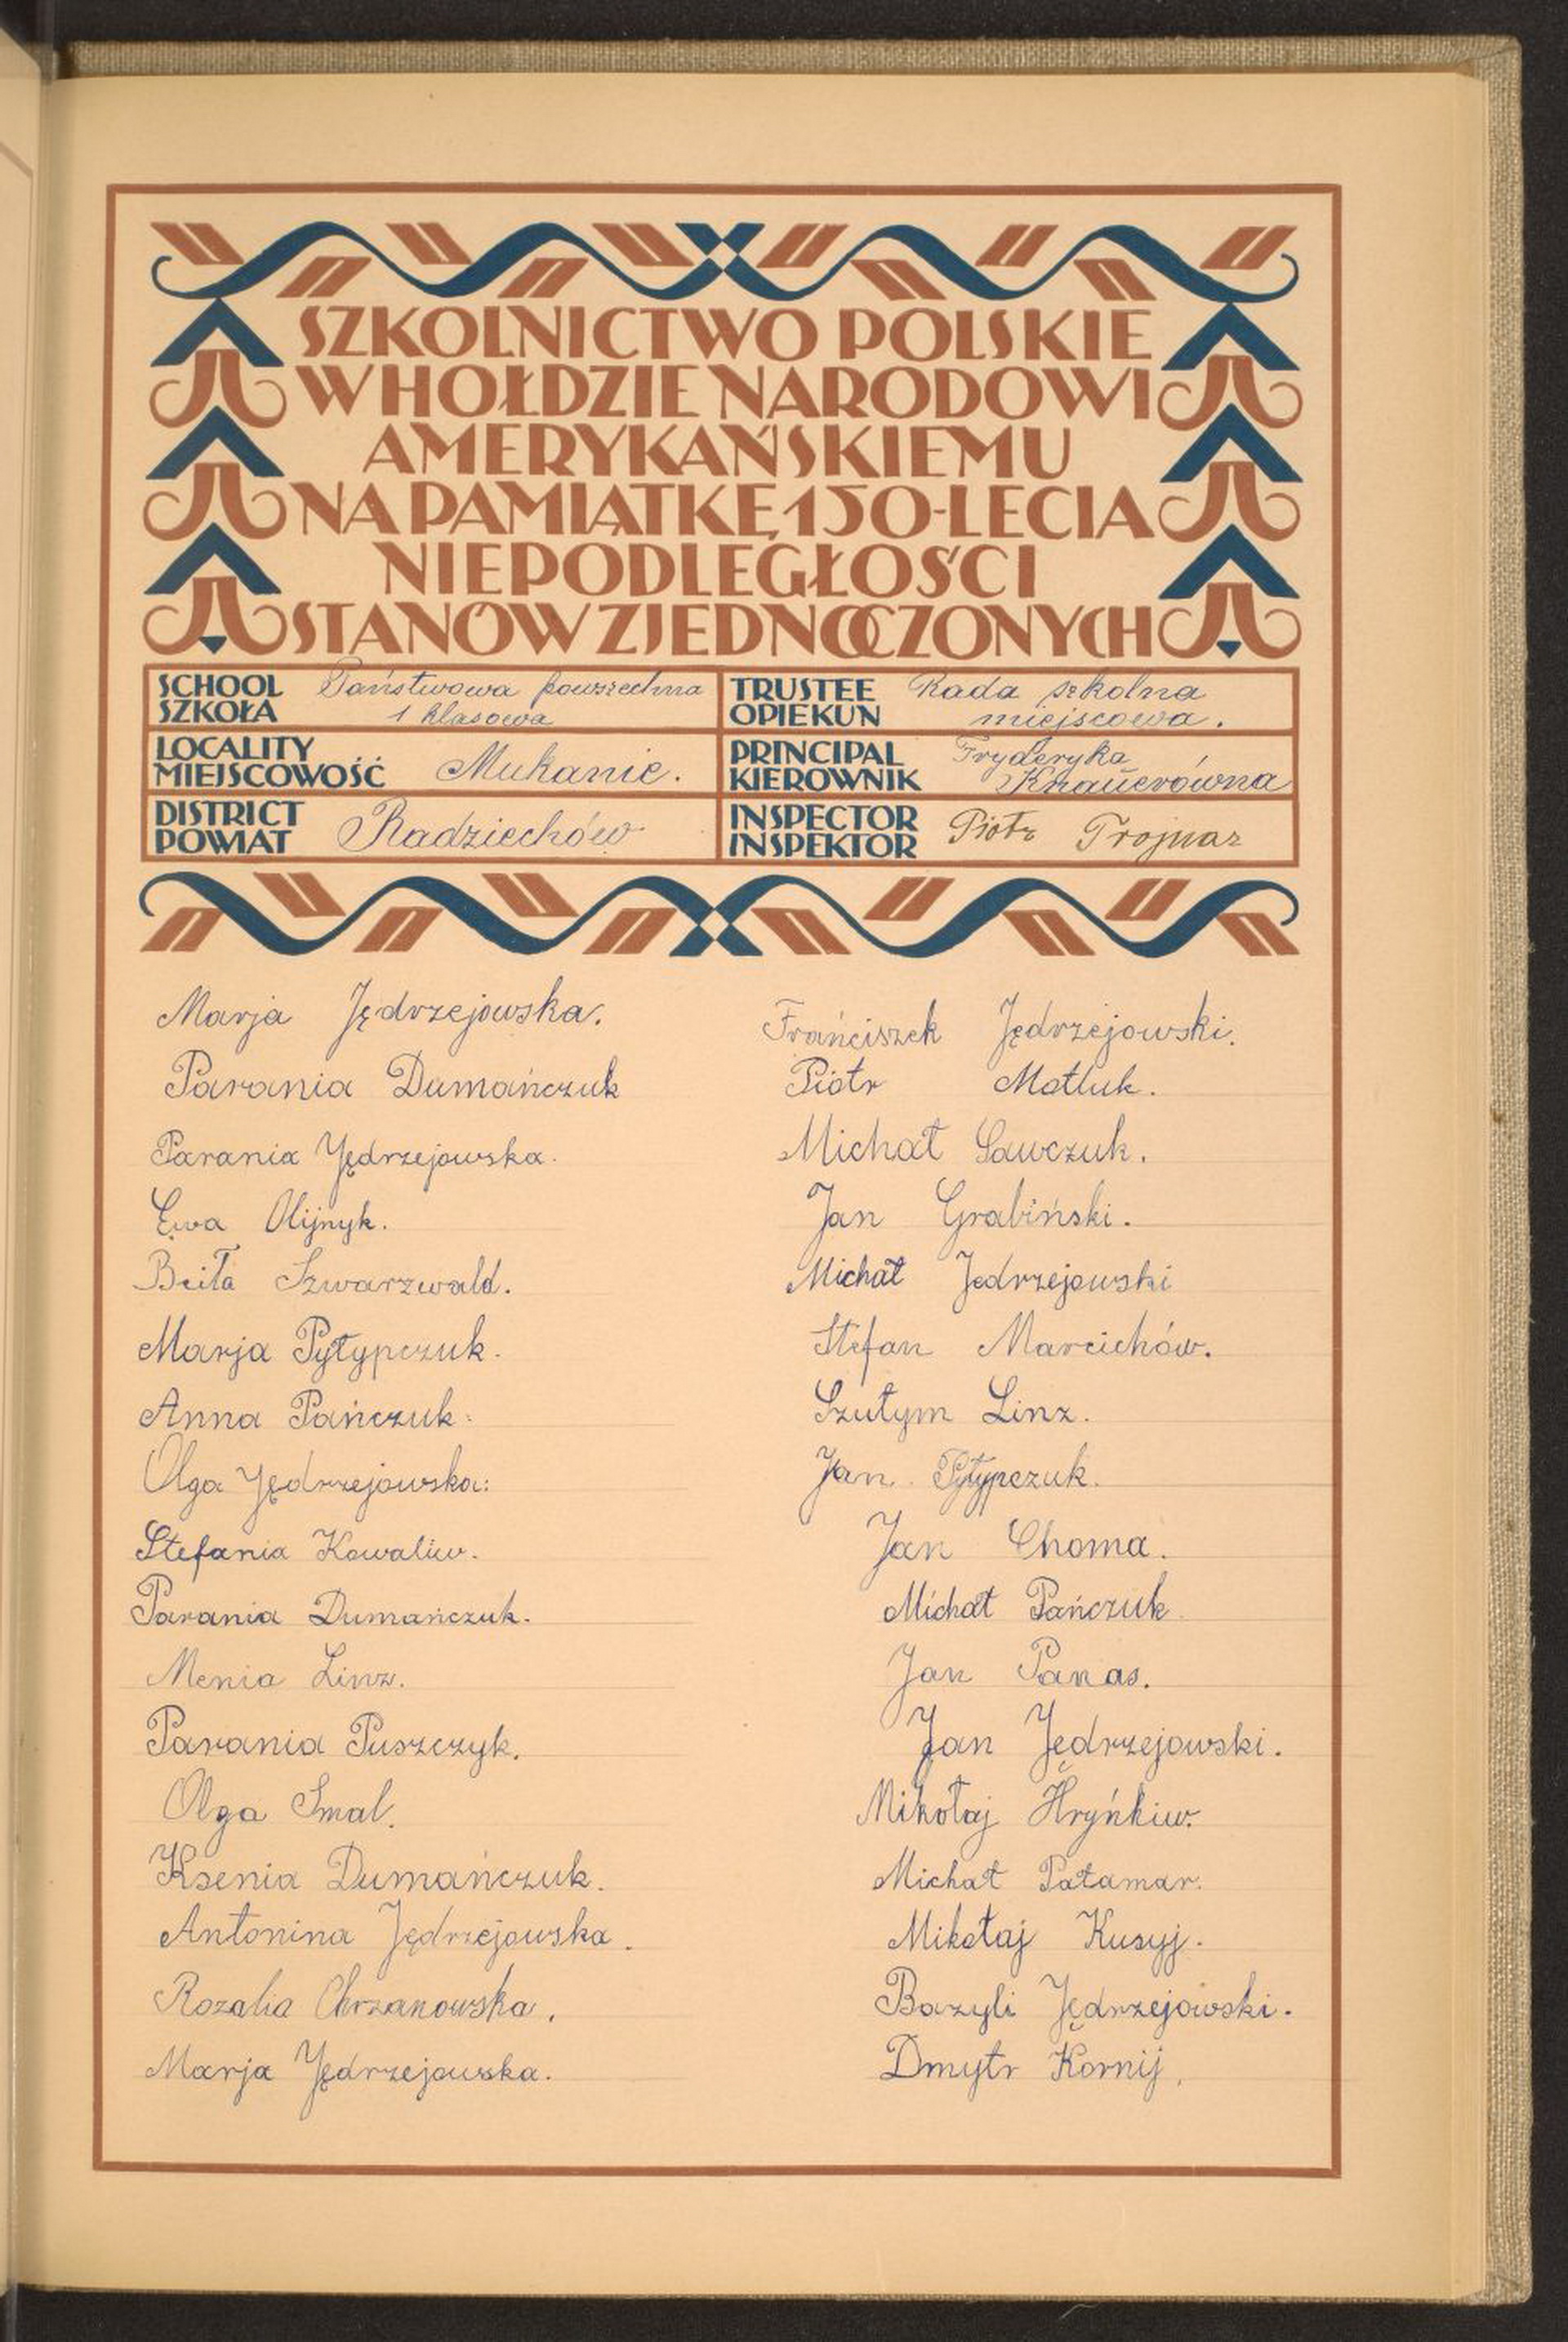 SZKOLNICTWO POLSKIE
W HOŁDZIE NARODOWI
AMERYKAŃSKIEMU
NA PAMIĄTKĘ 150-LECIA
NIEPODLEGŁOŚCI
STANÓW ZJEDNOCZONYCH
SCHOOL Państwowa powszechna
SZKOŁA 1 klasowa
TRUSTEE Rada szkolna
OPIEKUN miejscowa.
LOCALITY
MIEJSCOWOŚĆ Mukanie.
PRINCIPAL Fryderyka
KIEROWNIK Knauerówna
DISTRICT
POWIAT Radziechów
INSPECTOR
INSPEKTOR Piotr Trojnar
Marja Jędrzejowska.
Parania Dumańczuk
Parania Jędrzejowska.
Ewa Olijnyk.
Beiła Szwarzwald.
Marja Pyłypczuk.
Anna Pańczuk.
Olga Jędrzejowska.
Stefania Kowaliw.
Parania Dumańczuk.
Menia Linz.
Parania Puszczyk.
Olga Smal.
Ksenia Dumańczuk.
Antonina Jędrzejowska.
Rozalia Chrzanowska.
Marja Jędrzejowska.
Frańciszek Jędrzejowski.
Piotr Motluk.
Michał Sawczuk.
Jan Grabiński.
Michał Jedrzejowski
Stefan Marcichów.
Szułym Linz.
Jan Pyłypczuk.
Jan Choma.
Michał Pańczuk
Jan Panas.
Jan Jędrzejowski.
Mikołaj Hryńkiw.
Michał Pałamar.
Mikołaj Kusyj.
Bazyli Jędrzejowski.
Dmytr Kornij.